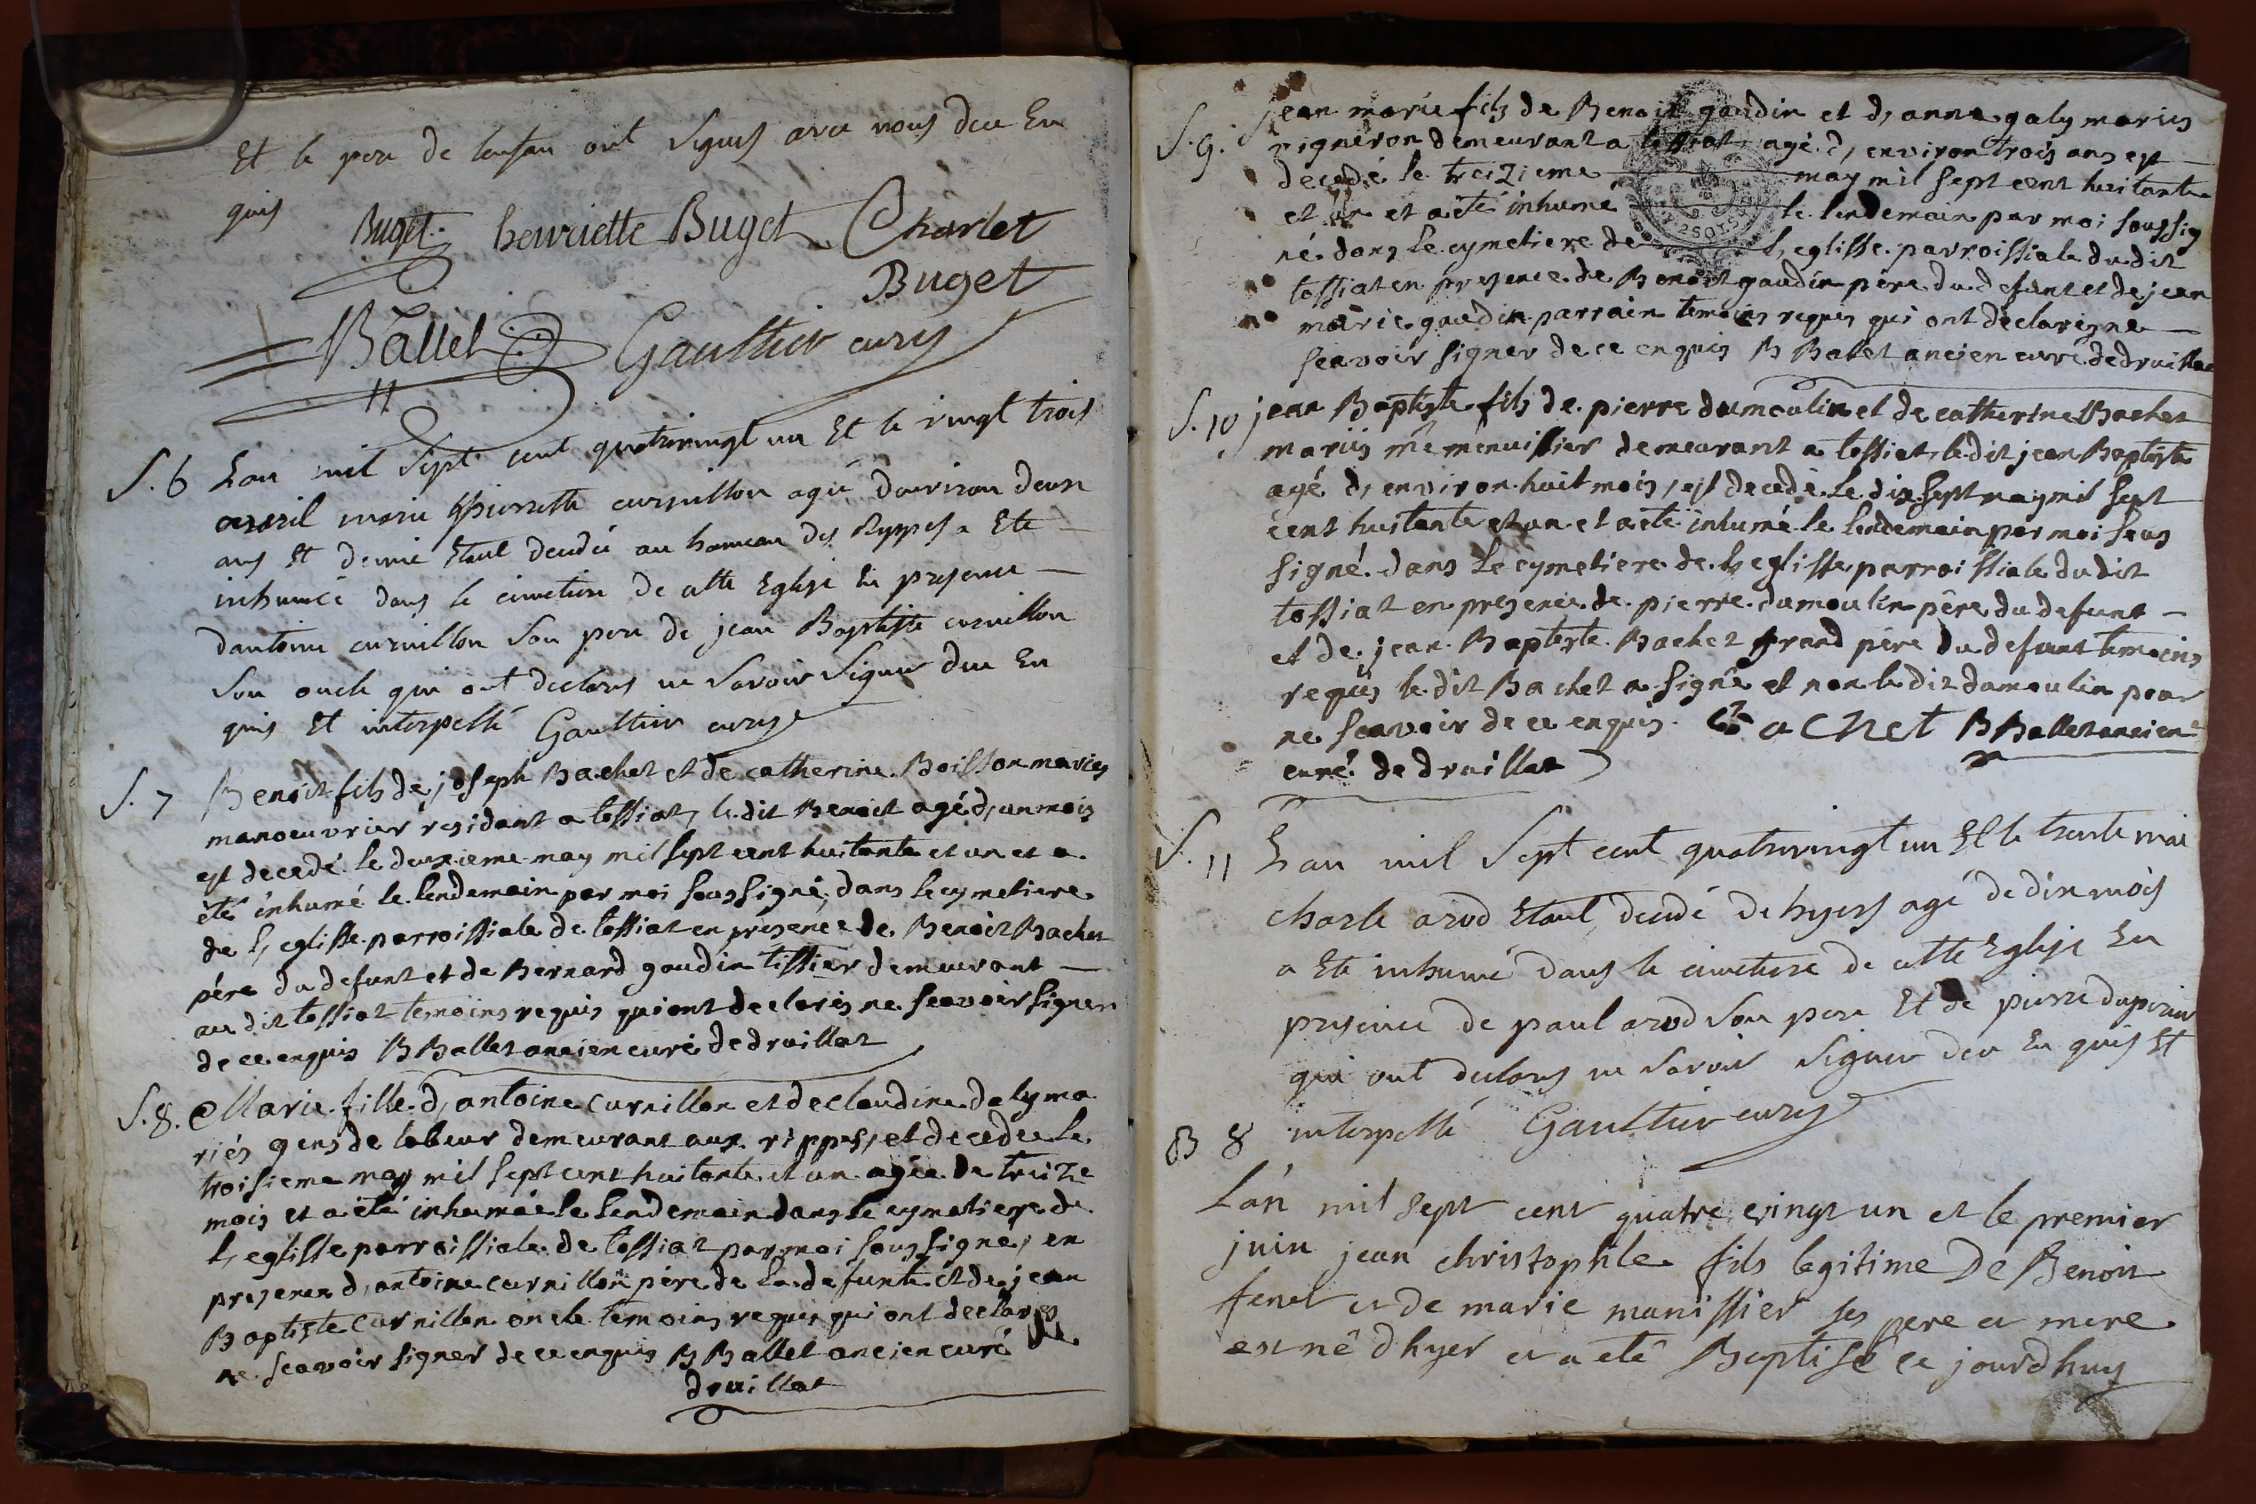 Et le pere de lenfan ont Signés avec nous dece En
quis
Buget henriette Buget Charlet
Buget
Ballet Gaulthier curé
S. 6 Lan mil Sept cent quatrevingt un Et le vingt trois
avril marie Pierrette curnillon agée denviron deux
ans Et demie Etant decedée au hameau des Rippes a Ete
inhumée dans le cimetiere de cette Eglise En presence
dantoine curnillon Son pere de jean Baptiste curnillon
Son oncle qui ont declarés ne Savoir Signer dece En
quis Et interpellé Gaulthier curé
S. 7 Benoit fils de joseph Bachet et de catherine Boisson mariés
manoeuvrier residant a tossiat, le dit Benoit agé d, un mois
est decedé le deuxieme may mil sept cent huitante et un et a
été inhumé le lendemain par moi soussigné, dans le cymetiere
de l, eglisse parroissiale de tossiat en presence de Benoit Bachet
père du defunt et de Bernard goudin tissier demeurant
au dit tossiat temoins requis qui ont declarés ne scavoir signer
de ce enquis B Ballet ancien curé de druillat
S. 8. Marie fille d, antoine curnillon et de claudine daly ma
riés gens de labeur demeurant aux rippes, et decedee le
troisieme may mil sept cent huitante et un agée de treize
mois et a été inhumée le lendemain dans le cymetiere de
l, eglisse parroissiale de tossiat par moi soussigné, en
presence d, antoine curnillon père de la defunte et de jean
Baptiste curnillon oncle temoins requis qui ont declarés
ne scavoir signer de ce enquis B Ballet ancien curé de
druillat
S. 9. jean marie fils de Benoit goudin et d, anne galy mariés
vigneron demeurant a tossiat, agé d, environ trois ans est
decedé le treizieme may mil sept cent huitante
et un et a été inhumé le lendemain par moi soussig
né dans le cymetiere de l, eglisse parroissiale du dit
tossiat en presence de Benoit goudin père du defunt et de jean
marie goudin parrain temoins requis qui ont déclarés ne
scavoir signer de ce enquis B Ballet ancien curé de druillat
S. 10 jean Baptiste fils de pierre dumoulin et de catherine Bachet
mariés me menuissier demeurant a tossiat, le dit jean Baptiste
agé d, environ huit mois, est decedé le dix sept may mil sept
cent huitante et un et a été inhumé le lendemain par moi sous
signé dans le cymetiere de l, eglisse parroissiale du dit
tossiat en presence de pierre dumoulin père du defunt
et de jean Baptiste Bachet grand père du defunt temoins
requis le dit Bachet a signé et non le dit dumoulin pour
ne scavoir de ce enquis Bachet B Ballet ancien
curé de druillat
S. 11 Lan mil Sept cent quatrevingt un Et le trente mai
charle arod Etant decedé dehyers agé de dix mois
a Ete inhumé dans le cimetiere de cette Eglise En
presence de paul arod Son pere Et de pierre duperier
qui ont declarés ne Savoir Signer dece En quis Et
interpellé Gaulthier curé
B 8
L'an mil sept cent quatre vingt un et le premier
juin jean christophle fils legitime De Benoit
et de marie manissier ses pere et mere
est né d hyer et a eté Baptisé ce jourdhuy